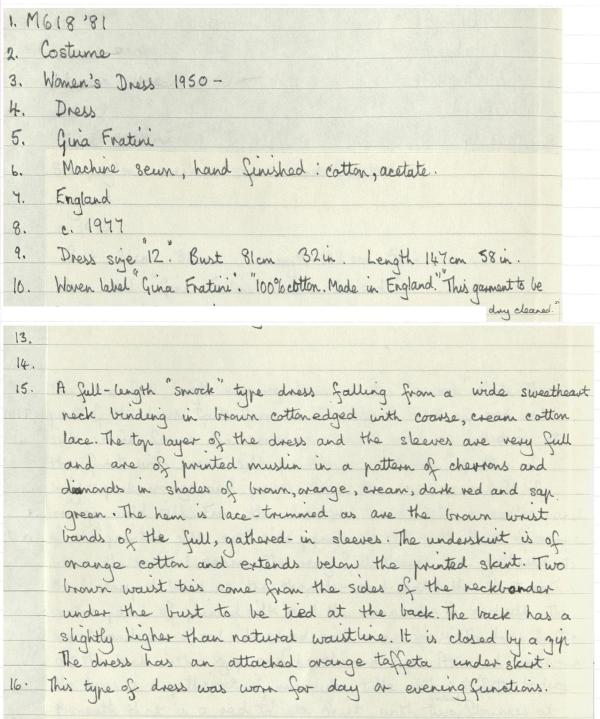 1. M618 '81
2. Costume
3. Women's Dress 1950 -
4. Dress
5. Gina Fratini
6. Machine sewn, hand finished : cotton, acetate.
7. England
8. c. 1977
9. Dress size "12". Bust 81cm 32in. Length 147cm 58in.
10. Woven label "Gina Fratini". "100% cotton. Made in England." "This garment to be
dry cleaned."
13.
14.
15. A full-length "smock" type dress falling from a wide sweetheart
neck binding in brown cotton edged with coarse, cream cotton
lace. The top layer of the dress and the sleeves are very full
and are of printed muslin in a pattern of chevrons and
diamonds in shades of brown, orange, cream, dark red and sap
green. The hem is lace-trimmed as are the brown wrist
bands of the full, gathered-in sleeves. The underskirt is of
orange cotton and extends below the printed skirt. Two
brown waist ties come from the sides of the neckborder
under the bust to be tied at the back. The back has a
slightly higher than natural waistline. It is closed by a zip.
The dress has an attached orange taffeta underskirt.
16. This type of dress was worn for day or evening functions.